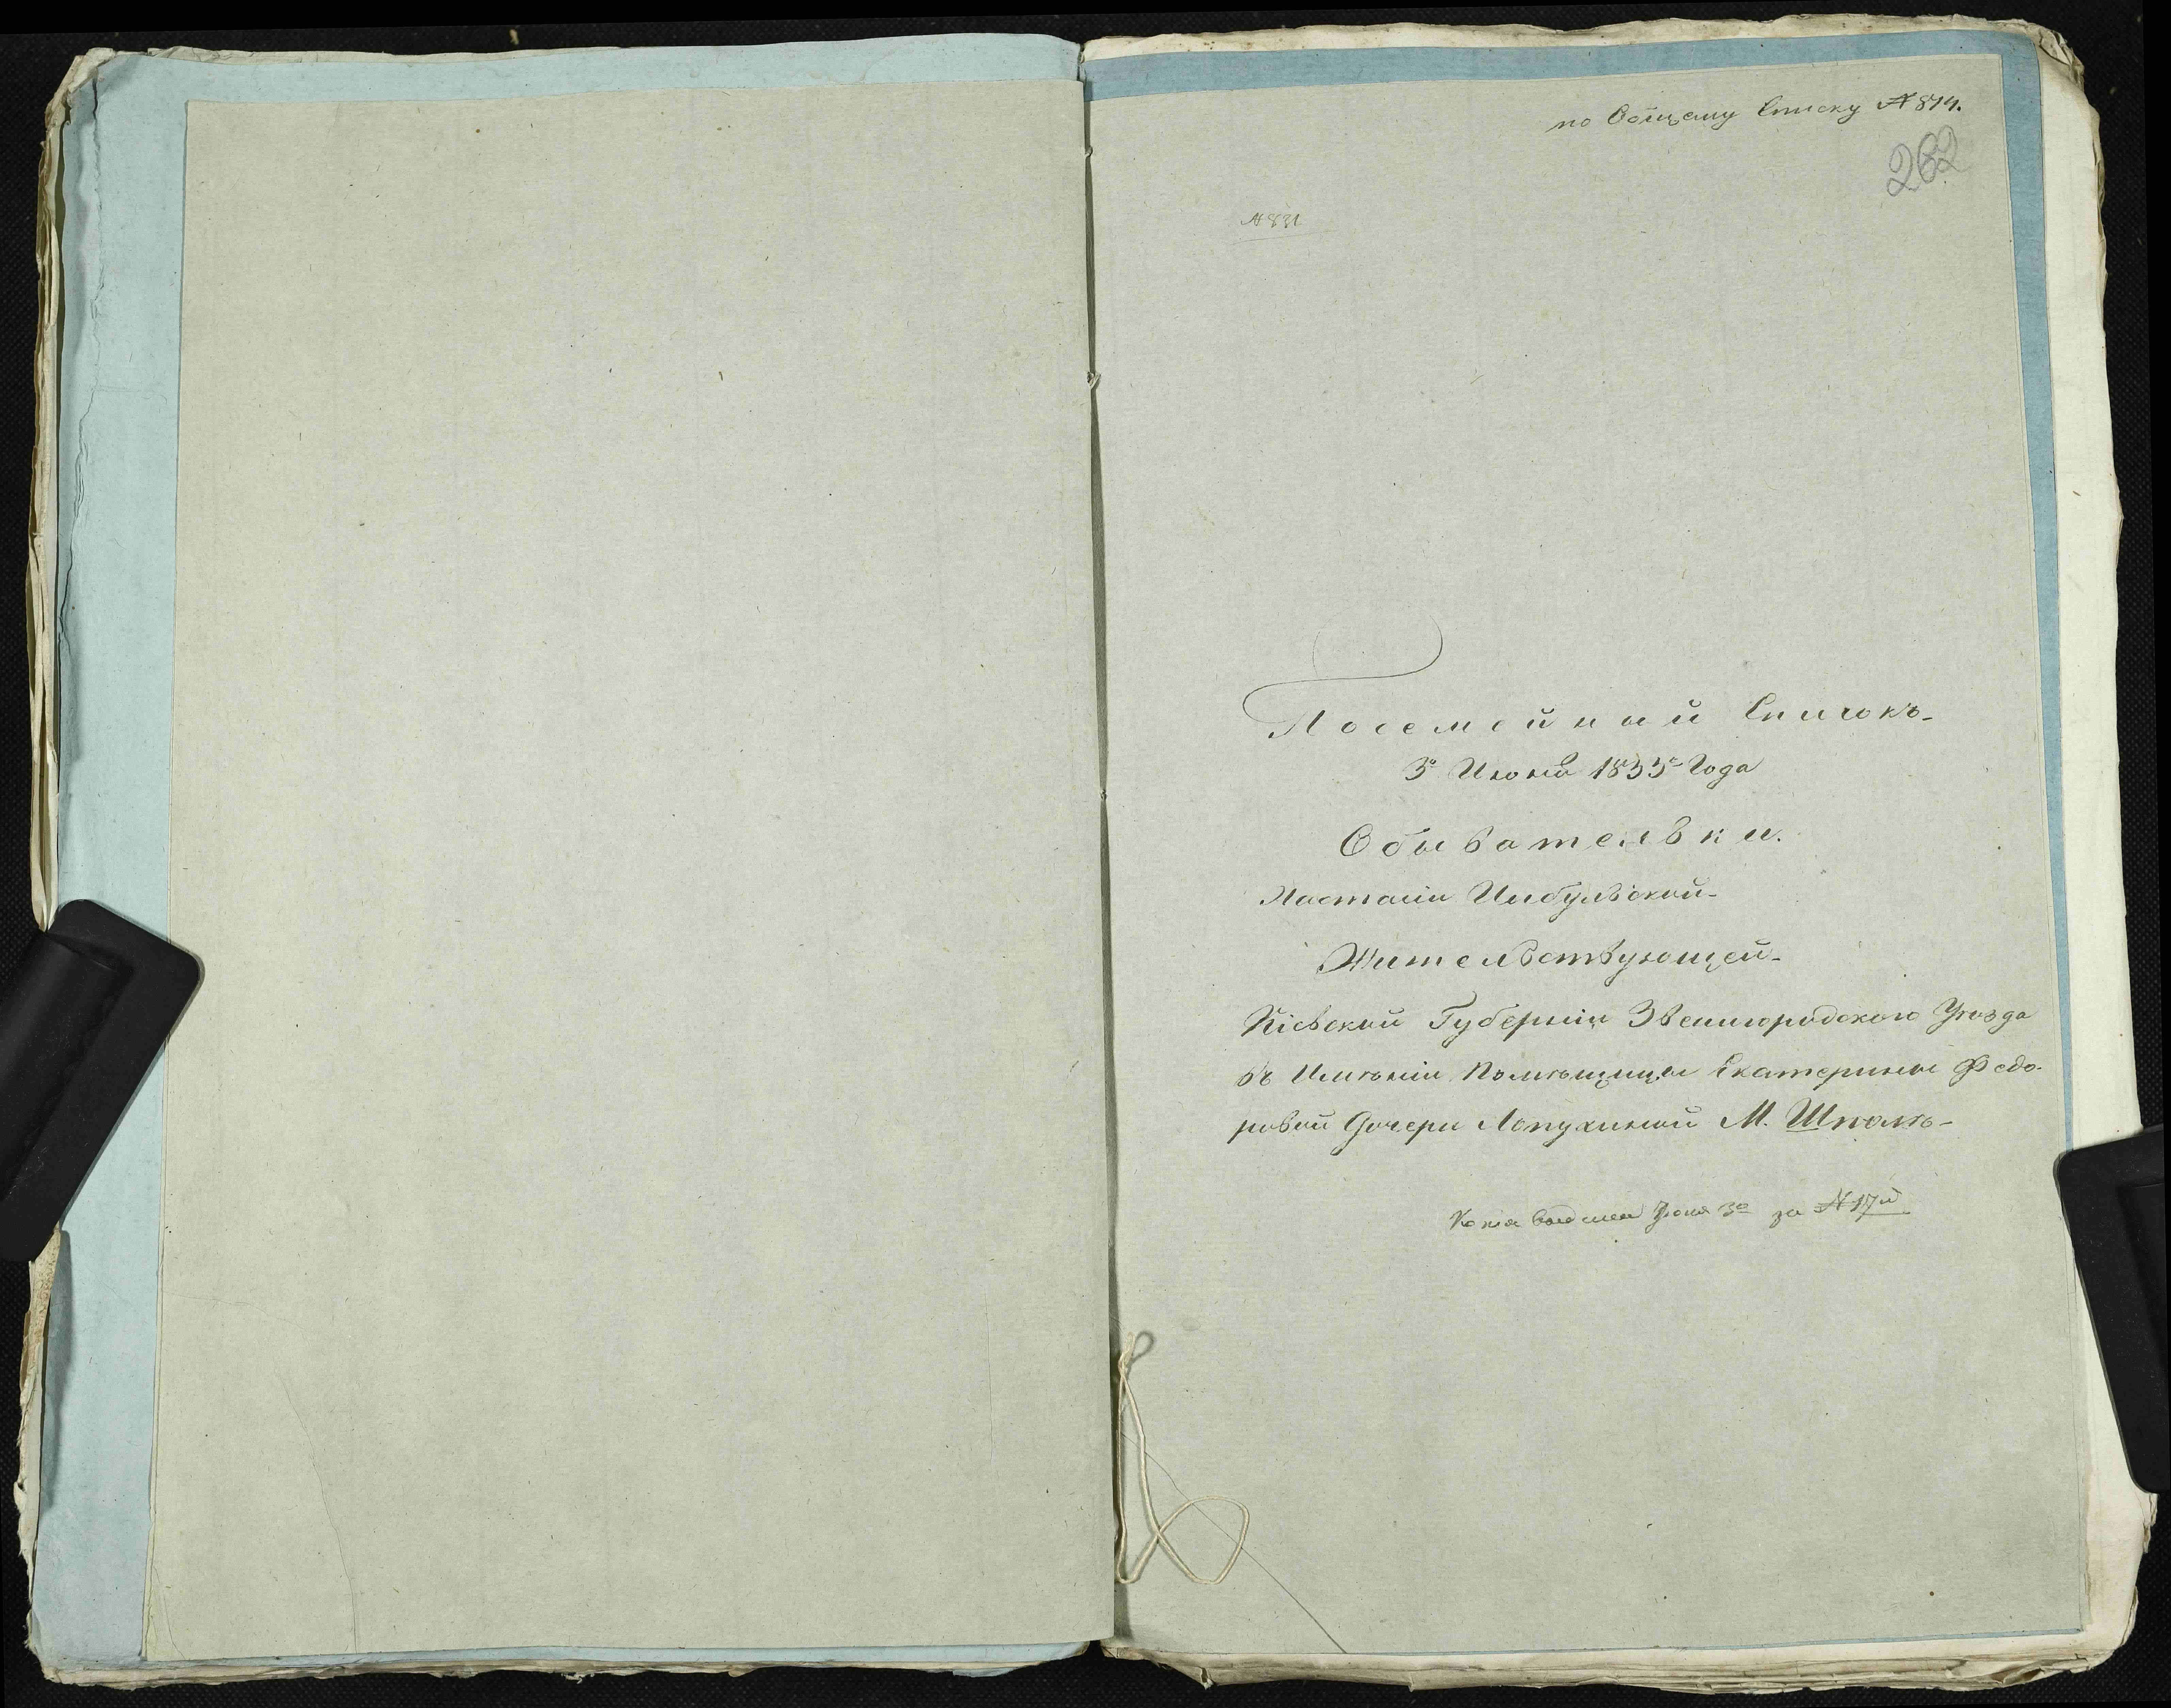 по Общему Списку № 814.
262
№ 831
Посемейный Списокъ
3го Июня 1833го Года
Обывательки.
Настасіи Цибульской
Жительствующей
Кіевской Губерніи Звенигородского Уѣзда
въ Имѣніи Помѣщицы Екатерины Федо-
ровой Дочери Лопухиной М. Шполѣ
Июня 3го за № 17й